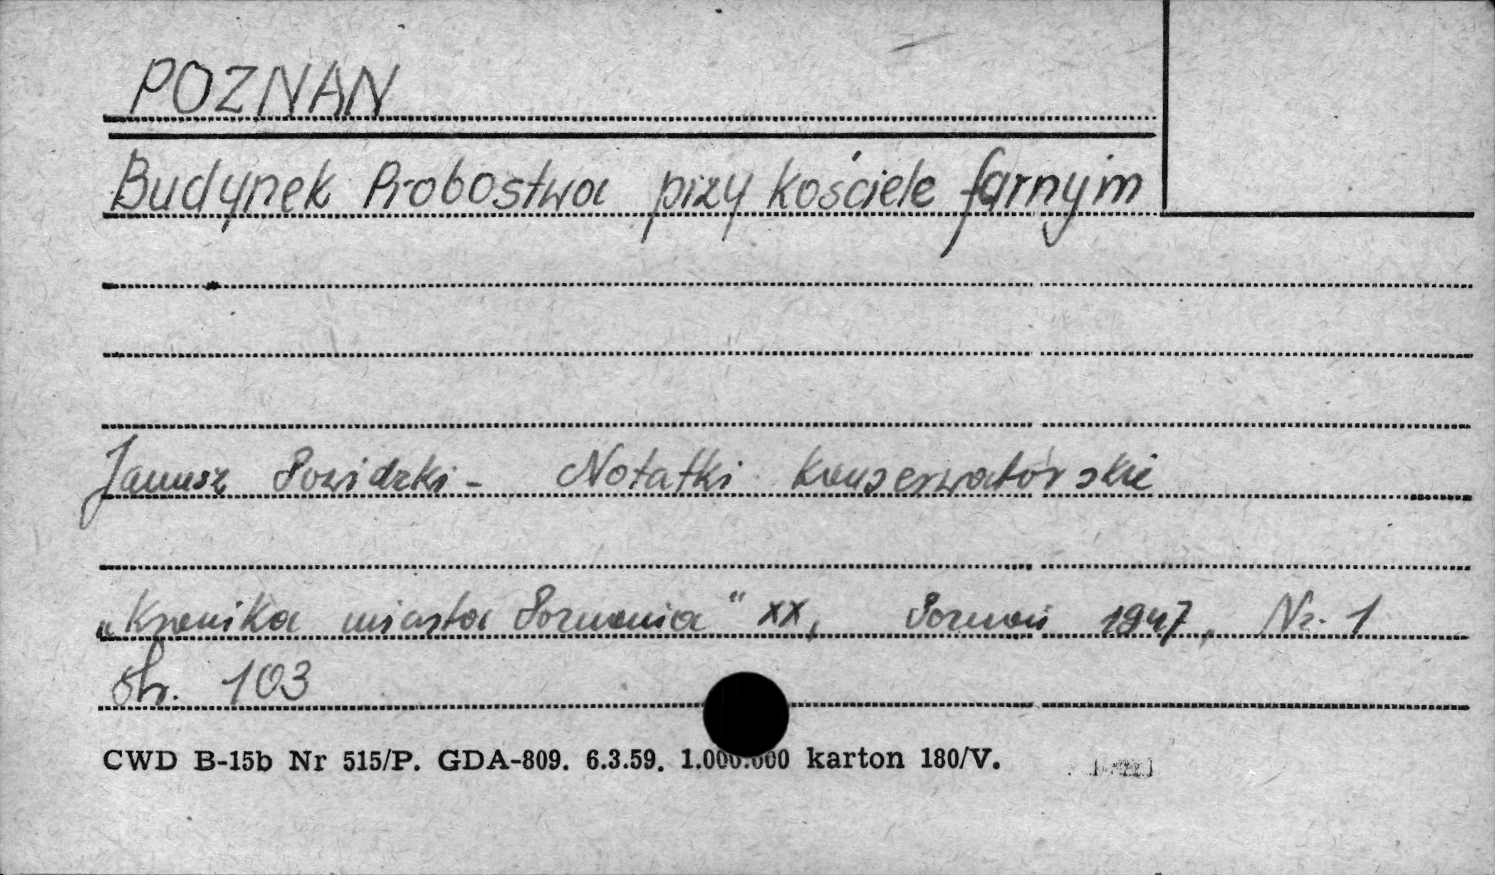 POZNAN
Budynek Probostwa przy kościele farnym
Janusz Powidzki - Notatki konserwatorskie
„Kronika miasta Poznania" XX, Poznań 1947, Nr. 1
str. 103
CWD B-15b Nr 515/P. GDA-809. 6.3.59. 1.000.000 karton 180/V.